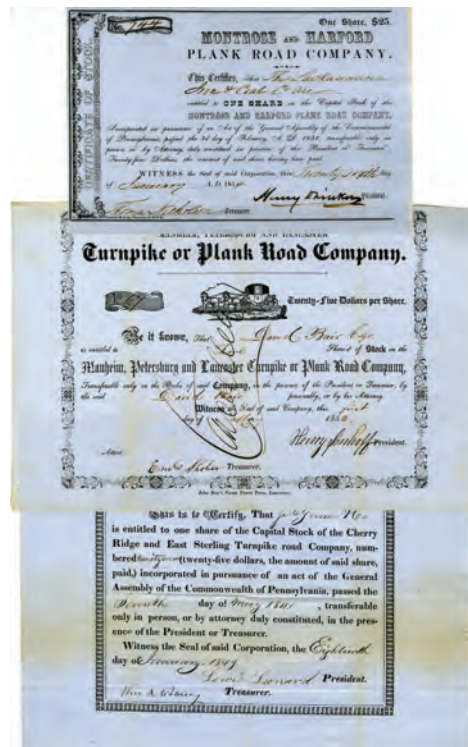 CERTIFICATE OF STOCK
No. 144
One Share, $25.
MONTROSE AND HARFORD
PLANK ROAD COMPANY.
This Certifies, That The Lackawanna
Iron & Coal Co are
entitled to ONE SHARE in the Capital Stock of the
MONTROSE AND HARFORD PLANK ROAD COMPANY,
Incorporated in pursuance of an Act of the General Assembly of the Commonwealth
of Pennsylvania, passed the day of February, A. D. 1851, transferable only in
person or by Attorney duly constituted in presence of the President or Treasurer
Twenty-five Dollars, the amount of said share having been paid.
WITNESS the Seal of said Corporation, this Twenty sixth day
of January A. D. 1854
Henry Drinker President.
Treasurer.
MANHEIM, PETERSBURG AND LANCASTER
Turnpike or Plank Road Company.
Twenty-Five Dollars per Share.
Be it known, That David Bair Esqr
is entitled to Shares of Stock in the
Manheim, Petersburg and Lancaster Turnpike or Plank Road Company,
Transferable only on the Books of said Company, in the presence of the President or Treasurer, by
the said David Bair personally, or by his Attorney.
Witness the Seal of said Company, this first
day of May 185
Henry Imhoff President.
Attest
Treasurer.
This is to Certify, That
is entitled to one share of the Capital Stock of the Cherry
Ridge and East Sterling Turnpike road Company, num-
bered (twenty-five dollars, the amount of said share,
paid,) incorporated in pursuance of an act of the General
Assembly of the Commonwealth of Pennsylvania, passed the
Seventh day of May 1841, transferable
only in person, or by attorney duly constituted, in the pres-
ence of the President or Treasurer.
Witness the Seal of said Corporation, the Eighteenth
day of January 1849
Lewis Leonard President.
Treasurer.